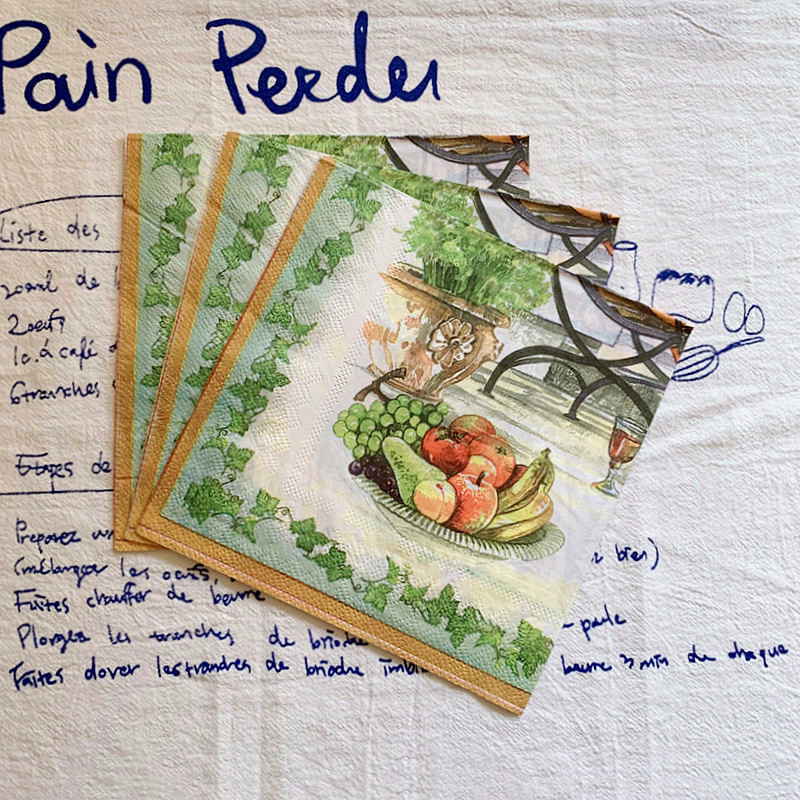 Pain Perdu
Liste des
200ml de
2 oeufs
1 c. à café
6 tranches
Etapes de
Preparez un
(mélanger les oeufs, z bien)
Faites chauffer de beurre
Plongez les tranches de brioche - paule
Faites dorer les tranches de brioche imbi beurre 3 min de chaque